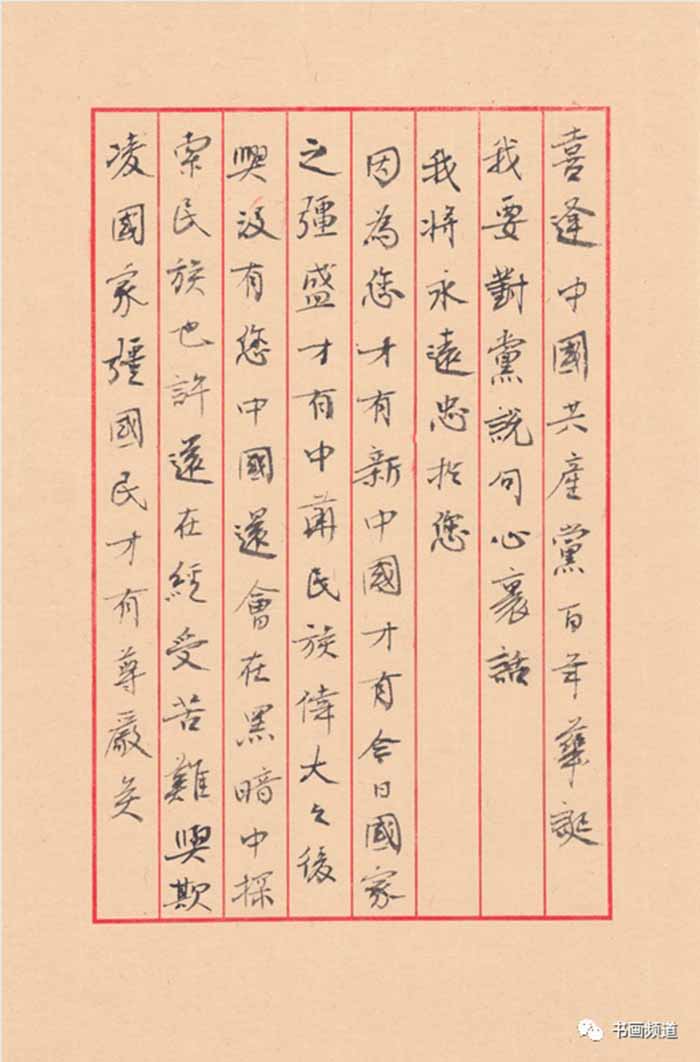 喜逢中國共產黨百年華誕
我要對黨說句心裏話
我將永遠忠於您
因為您才有新中國才有今日國家
之疆盛才有中華民族偉大之後
興没有您中國還會在黑暗中探
索民族也許還在經受苦難與欺
凌國家疆國民才有尊嚴矣
书画频道